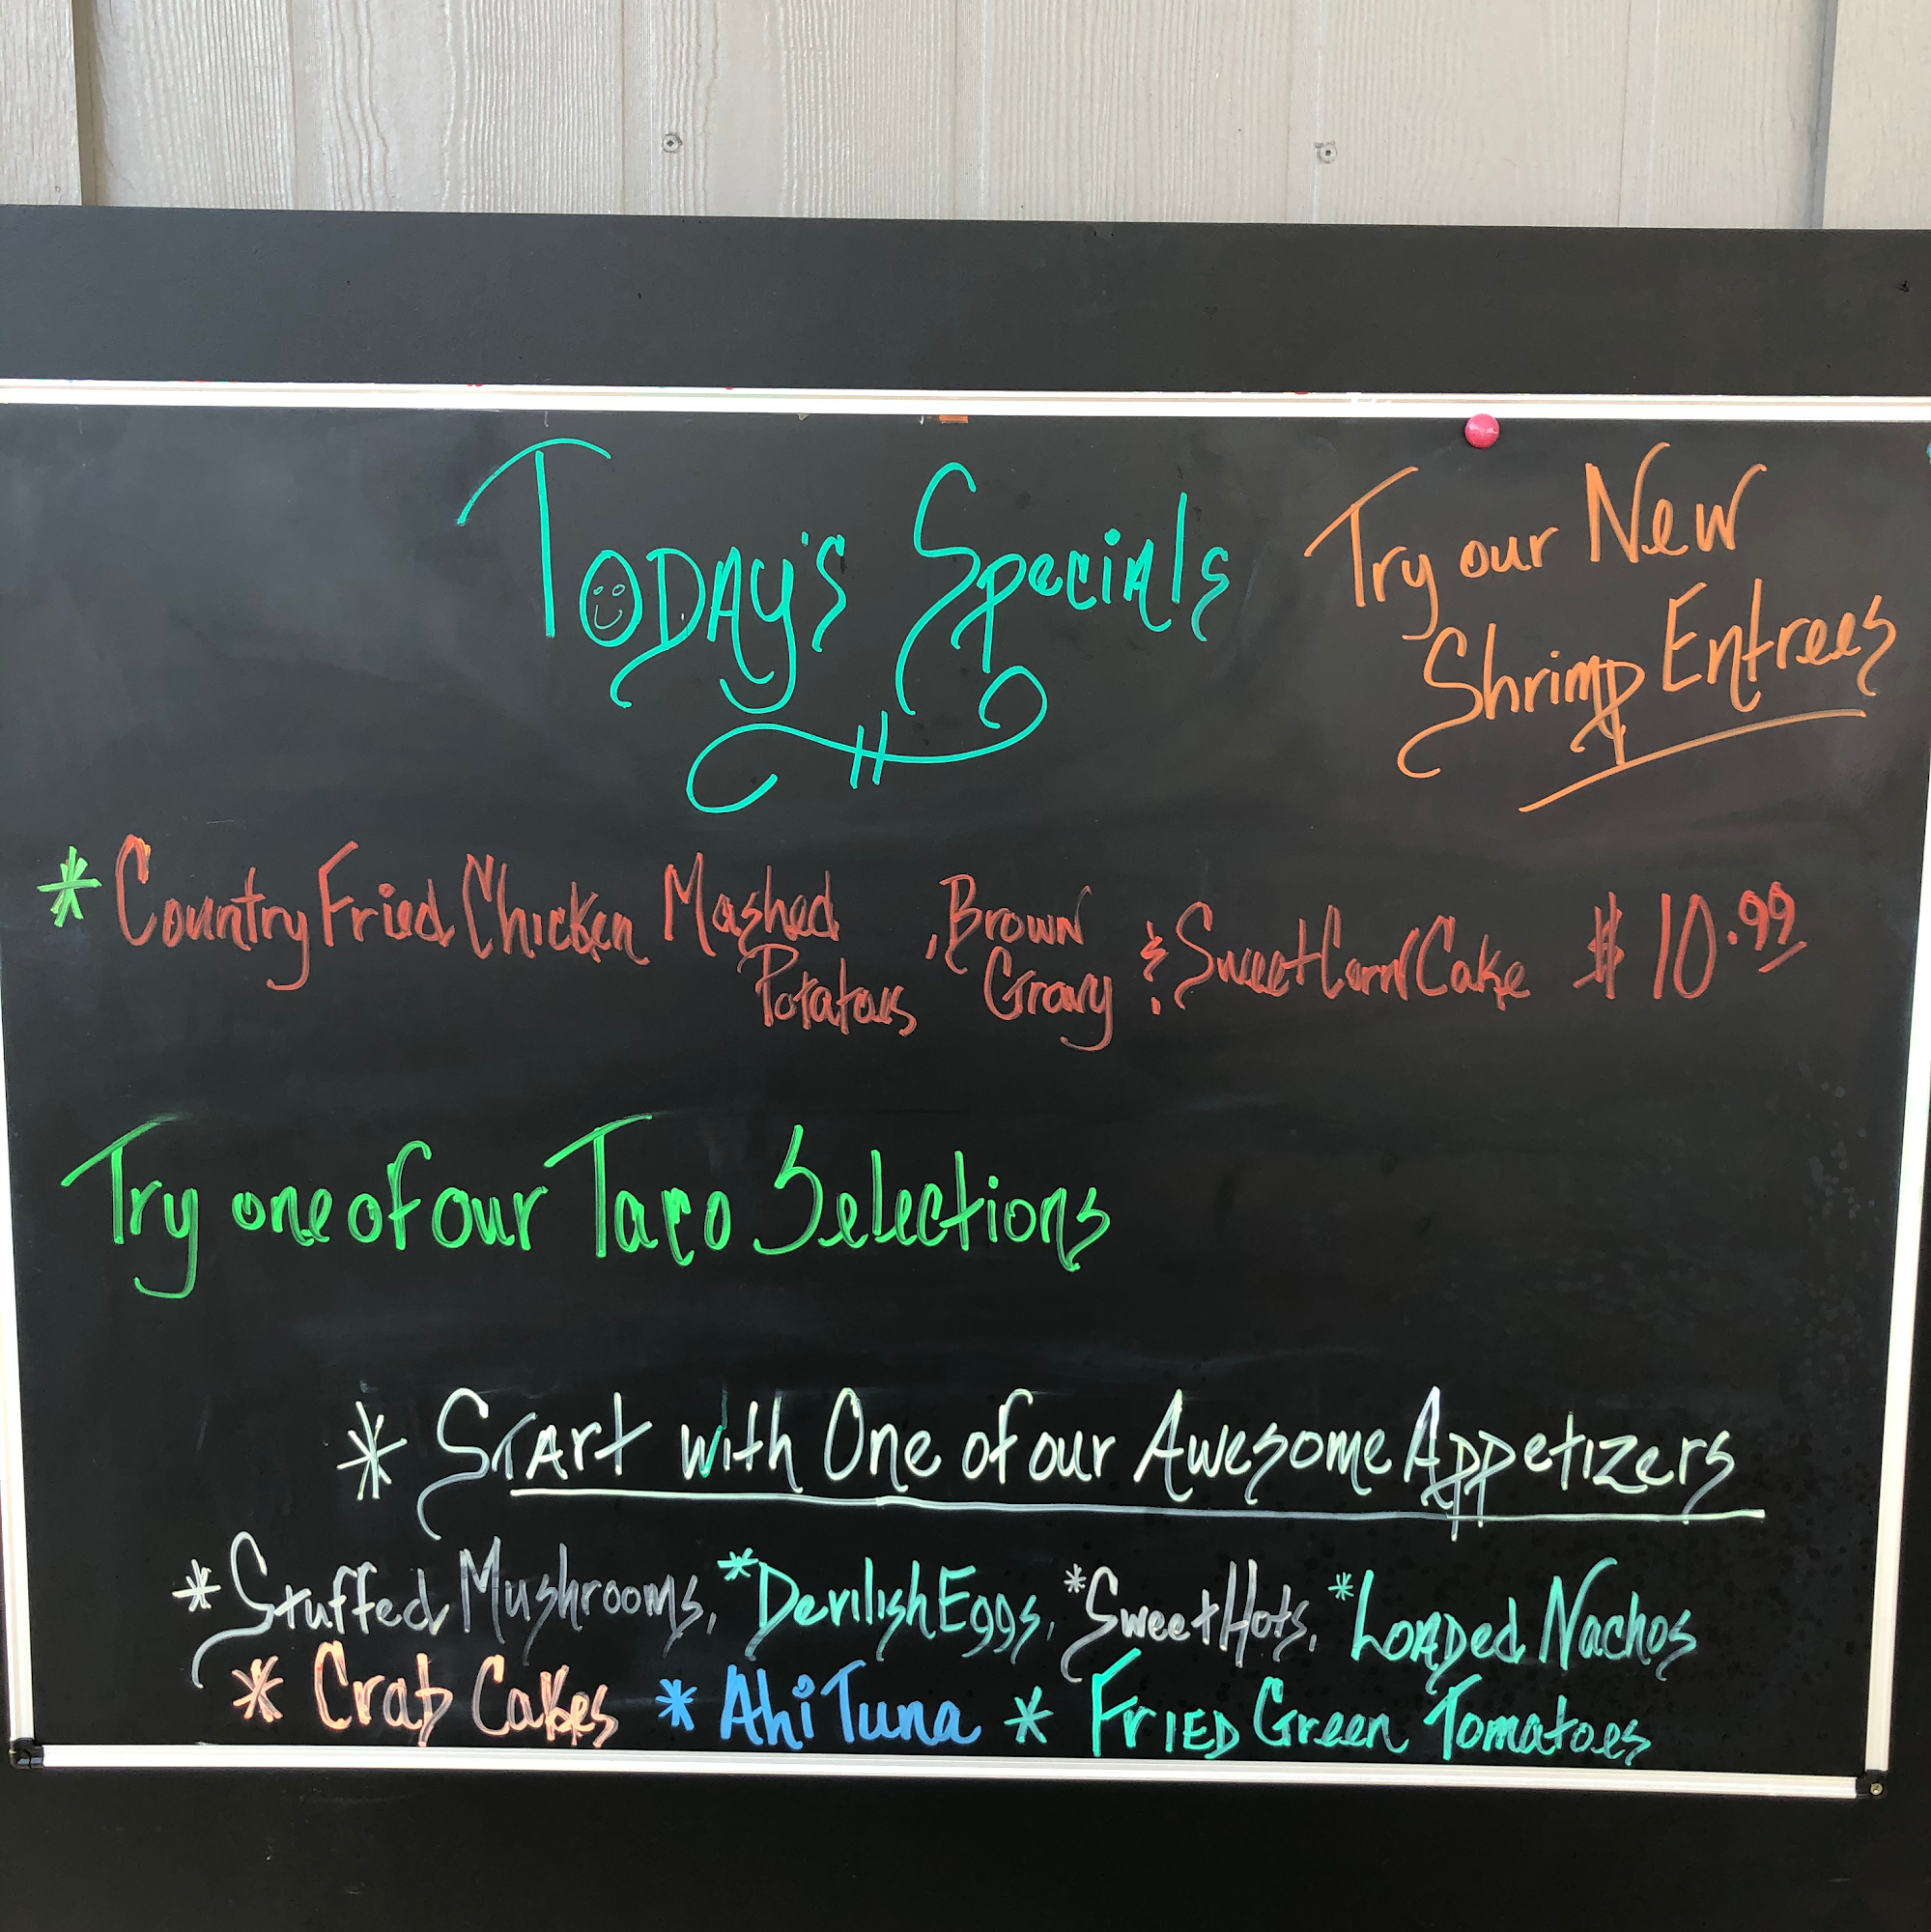 Today's Specials
Try our New
Shrimp Entrees
* Country Fried Chicken Mashed Potatoes, Brown Gravy & Sweet Corn Cake $10.99
Try one of our Taco Selections
* Start with One of our Awesome Appetizers
* Stuffed Mushrooms, * Devilish Eggs, * Sweet Hots, * Loaded Nachos
* Crab Cakes * Ahi Tuna * Fried Green Tomatoes